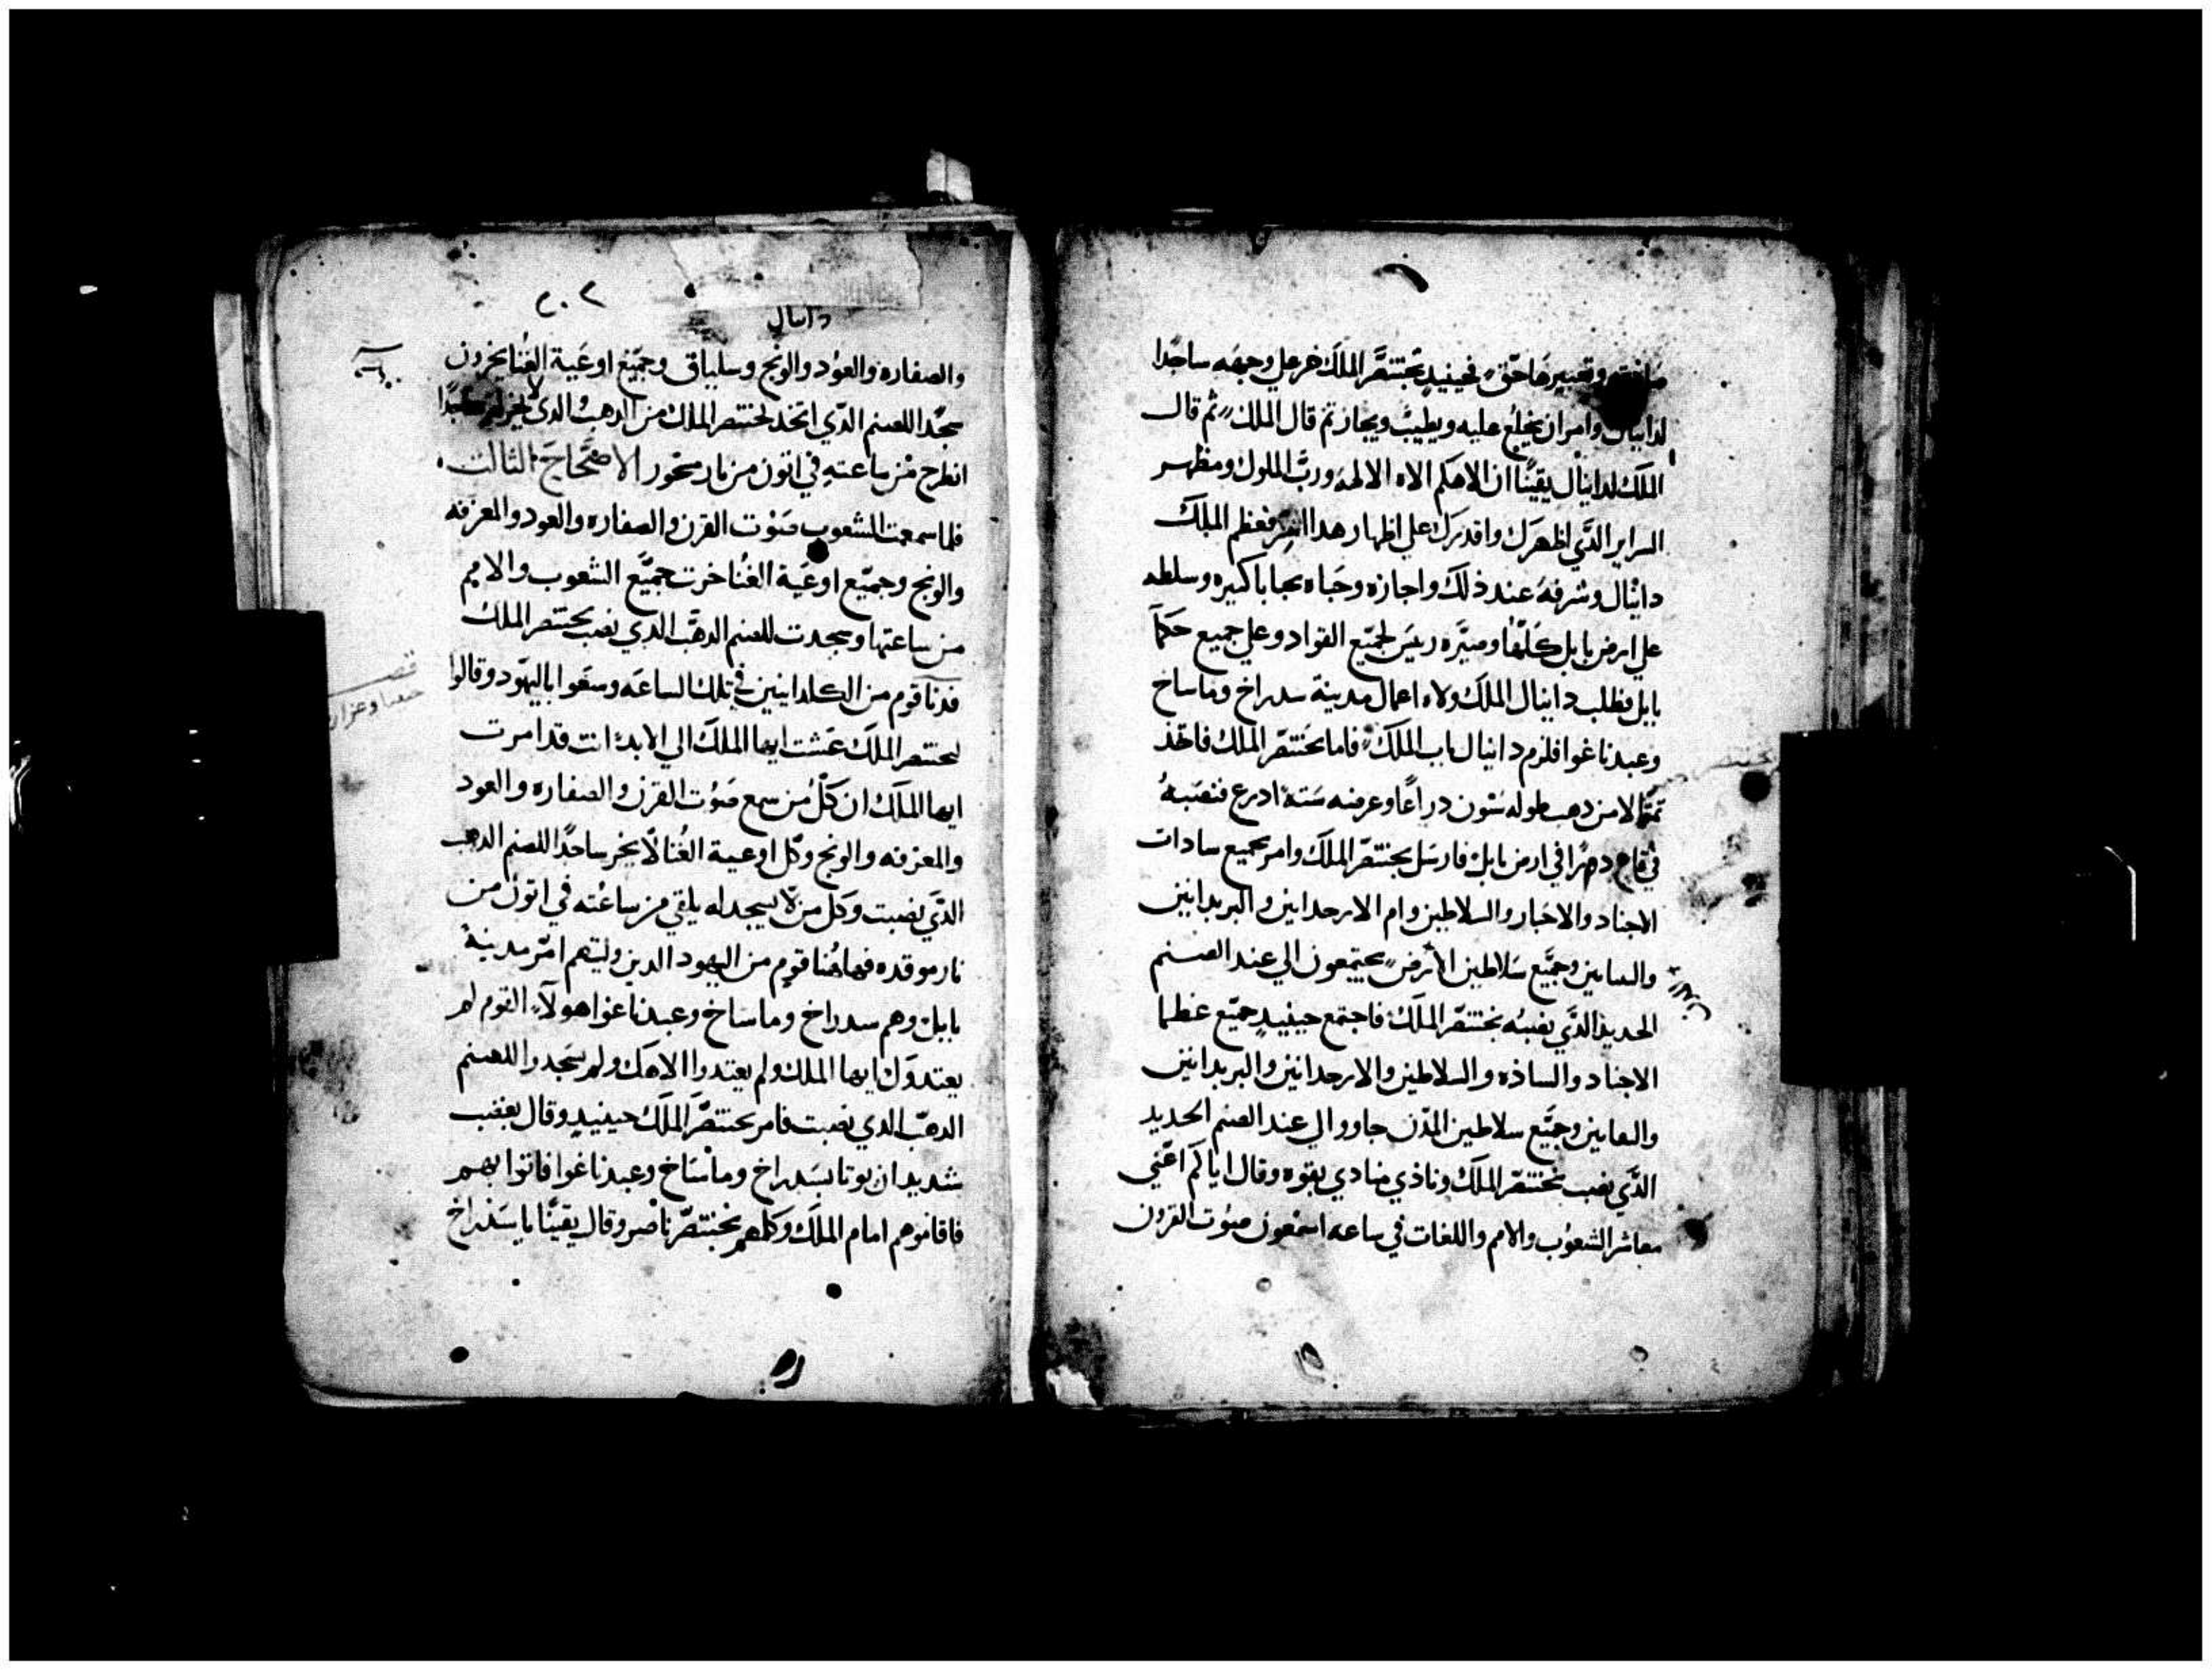 وتعبيرها حق فحينيد بختنصر الملك خر على وجهه ساجدا
لدانيال وامران يخلع عليه ويطيب ويجاز ثم قال الملك ثم قال
الملك لدانيال يقينا ان الاهكم الاه الالهه ورب الملوك ومظهر
السراير الدي اظهرك واقدرك على اظهار هدا السر فعظم الملك
دانيال وشرفه عند ذلك واجازه وحباه بحبا باكثيره وسلطه
على ارض بابل كلها وصيره ريس لجميع القواد وعلى جميع حكما
بابل فطلب دانيال الملك ولاه اعمال مدينة سدراخ وماساخ
وعبدناغوا فلزم دانيال باب الملك فاما بختنصر الملك فاتخذ
تمثالا من دهب طوله ستون دراعا وعرضه ستة ادرع فنصبه
في قاع دصرا في ارض بابل فارسل بختنصر الملك وامر بجميع سادات
الاجناد والاخبار والسلاطين وام الارحدانين والبربدانين
وجميع سلاطين الارض يجتمعون الي عند الصنم
الحديد الدي نصبه بختنصر الملك فاجتمع حينيد جميع عظما
الاجناد والساده والسلاطين والارحدانين والبربدانين
وجميع سلاطين المدن جاووا الى عند الصنم الحديد
الدي نصب بختنصر الملك ونادي منادي بقوه وقال اياكم اعني
معاشر الشعوب والامم واللغات في ساعه اسمعون صوت القرون
٢٠٢
دانيال
والصفاره والعود والونج وسلياق وجميع اوعية الغنا يخرون
سجدا للصنم الدي اتخد بختنصر الملك من الدهب والدي لا يخر له ساجدا
انطرح من ساعته في اتون من نار مسجور الاصحاح الثالث
فلما سمعت الشعوب صوت القرن والصفاره والعود والمعزفه
والونج وجميع اوعية الغنا خرت جميع الشعوب والامم
من ساعتها وسجدت للصنم الدهب الدي نصب بختنصر الملك
فدنا قوم من الكلدانيين في تلك الساعه وسعوا باليهود وقالوا
لبختنصر الملك عشت ايها الملك الي الابد انت قد امرت
ايها الملك ان كل من سمع صوت القرن والصفاره والعود
والمعزفه والونج وكل اوعية الغنا لا يخر ساجدا للصنم الدهب
الدي نصبت وكل من لا يسجد له يلقي من ساعته في اتون من
نار موقده فها هنا قوم من اليهود الدين وليتهم امر مدينة
بابل وهم سدراخ وماساخ وعبدناغوا هولاء القوم لم
يعتدوك ايها الملك ولم يعتدوا الاهك ولم يسجدوا للصنم
الدهب الدي نصبت فامر بختنصر الملك حينيد وقال بغضب
شديد ان يوتا بسدراخ وماساخ وعبدناغوا فاتوا بهم
فاقاموهم امام الملك وكلمهم بختنصر ناصر وقال يقينا ياسدراخ